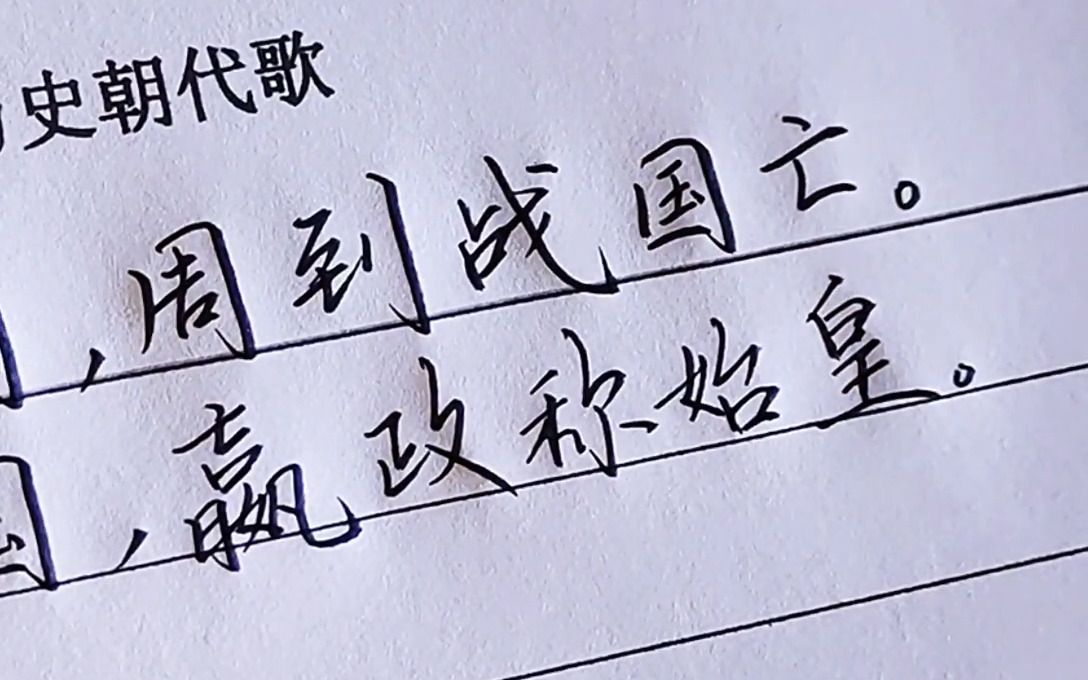 史朝代歌
，周到战国亡。
，嬴政称始皇。